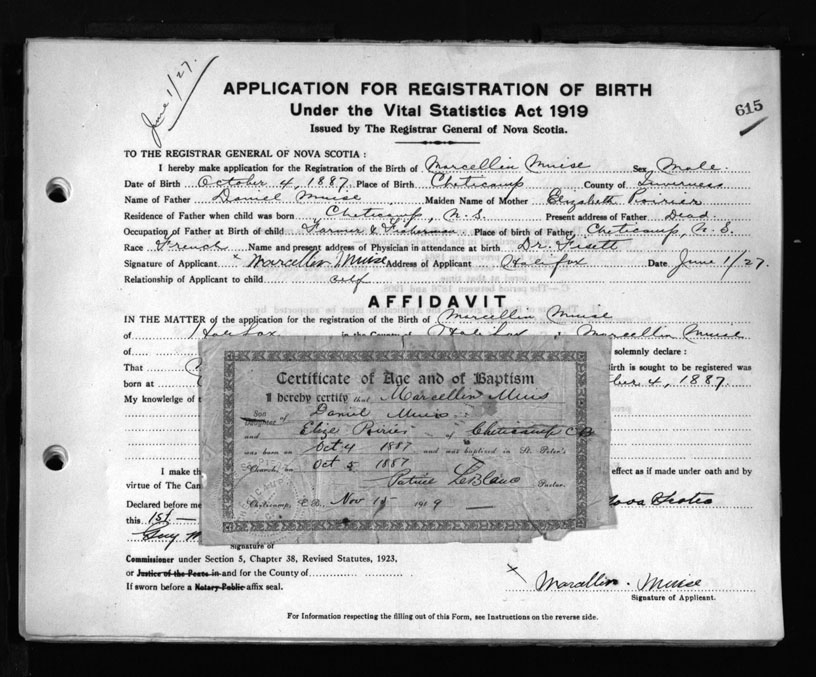 June 1/27.
APPLICATION FOR REGISTRATION OF BIRTH
Under the Vital Statistics Act 1919
615
Issued by The Registrar General of Nova Scotia.
TO THE REGISTRAR GENERAL OF NOVA SCOTIA :
I hereby make application for the Registration of the Birth of Marcellin Muise Sex Male.
Date of Birth October 4, 1887. Place of Birth Cheticamp County of Inverness
Name of Father Daniel Muise Maiden Name of Mother Elizabeth Poirier
Residence of Father when child was born Cheticamp, N.S. Present address of Father Dead.
Occupation of Father at Birth of child Farmer & Fisherman Place of birth of Father Cheticamp, N.S.
Race French Name and present address of Physician in attendance at birth Dr. Fisett
Signature of Applicant x Marcellin Muise Address of Applicant Halifax Date June 1/27.
Relationship of Applicant to child self
AFFIDAVIT
IN THE MATTER of the application for the registration of the Birth of Marcellin Muise
of Halifax in the County of Halifax Marcellin Muise
of solemnly declare :
That birth is sought to be registered was
born at 4, 1887.
My knowledge of
Certificate of Age and of Baptism
I hereby certify that Marcellin Muis
Son
Daughter of Daniel Muis
and Elize Poirier of Cheticamp CB
was born on Oct 4 1887 and was baptized in St. Peter's
Church, on Oct 5 1887
Patrice LeBlanc Pastor.
Cheticamp, C.B., Nov 15 1919
I make th effect as if made under oath and by
virtue of The Can
Declared before me Nova Scotia
this 1st
Guy
Signature of
Commissioner under Section 5, Chapter 38, Revised Statutes, 1923,
or Justice of the Peace in and for the County of
If sworn before a Notary Public affix seal.
x Marcellin Muise
Signature of Applicant.
For Information respecting the filling out of this Form, see Instructions on the reverse side.